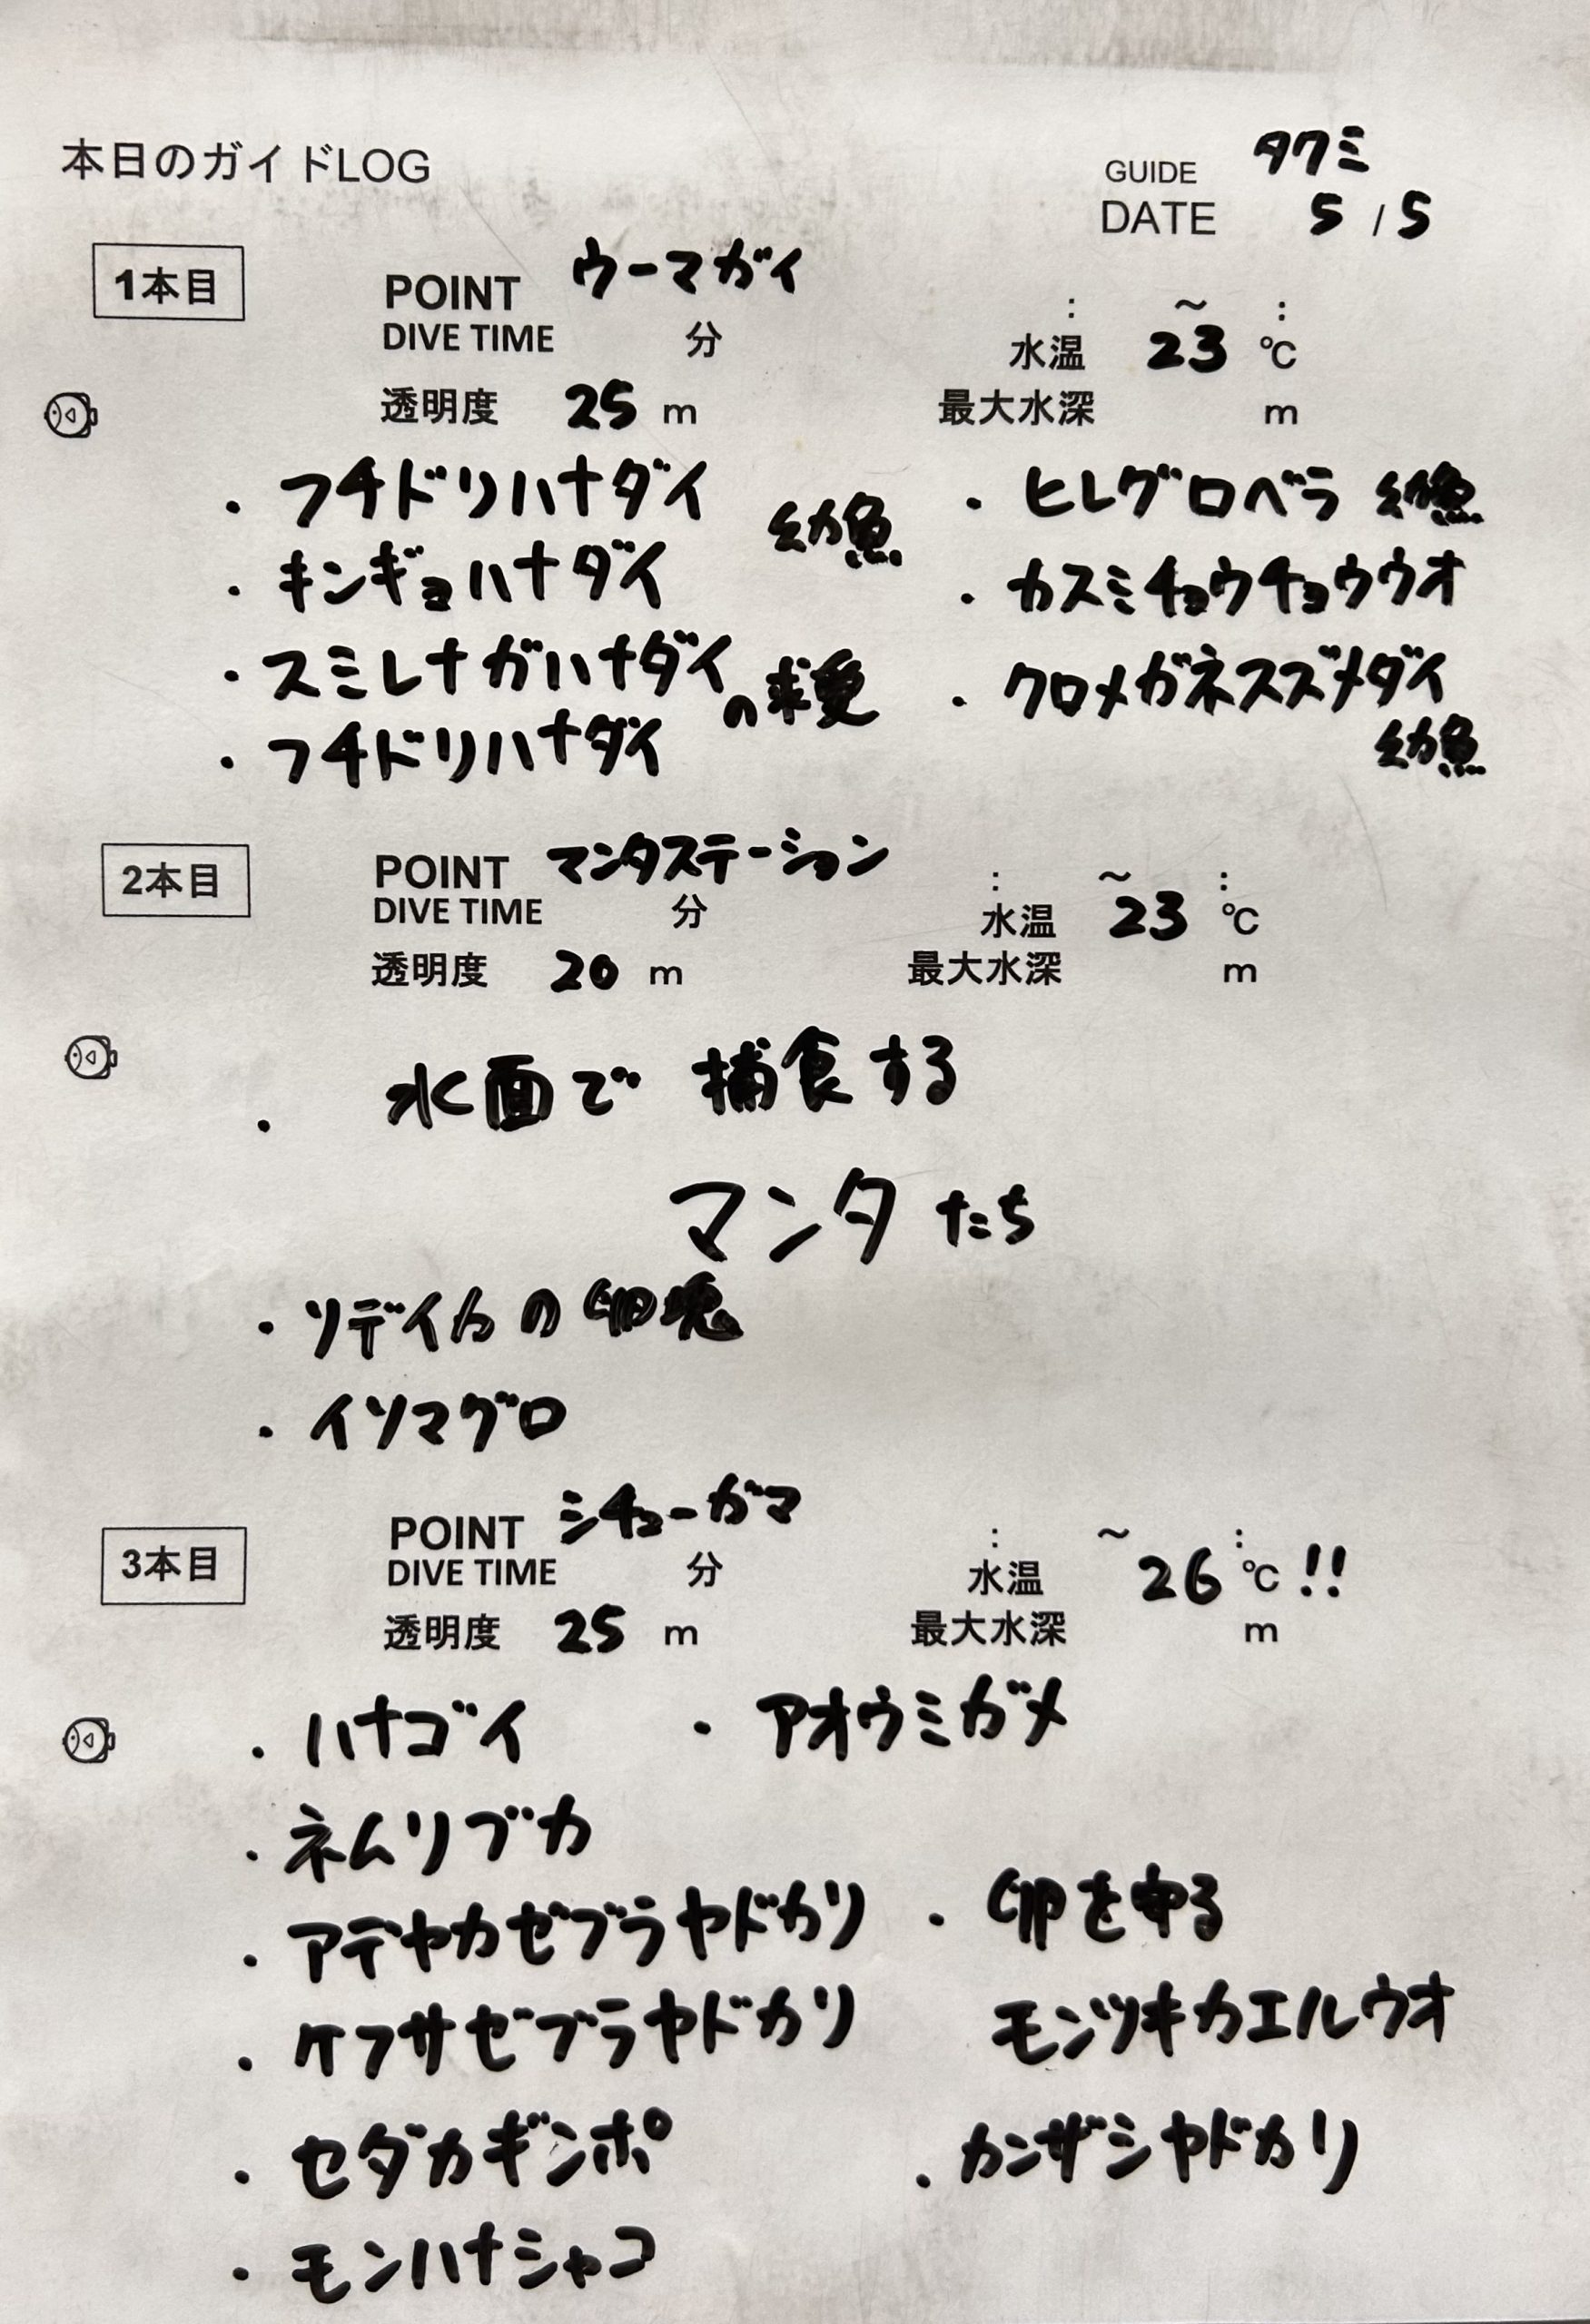 本日のガイドLOG
GUIDE タクミ
DATE 5 / 5
1本目
POINT ウーマガイ
DIVE TIME 分 : ～ :
水温 23 ℃
透明度 25 m 最大水深 m
・フチドリハナダイ
・キンギョハナダイ 幼魚
・スミレナガハナダイ
・フチドリハナダイ の求愛
・ヒレグロベラ 幼魚
・カスミチョウチョウウオ
・クロメガネスズメダイ
幼魚
2本目
POINT マンタステーション
DIVE TIME 分 : ～ :
水温 23 ℃
透明度 20 m 最大水深 m
・水面で 捕食する
マンタたち
・ソデイカの卵塊
・イソマグロ
3本目
POINT シチューガマ
DIVE TIME 分 : ～ :
水温 26 ℃ !!
透明度 25 m 最大水深 m
・ハナゴイ ・アオウミガメ
・ネムリブカ
・アデヤカゼブラヤドカリ
・ケフサゼブラヤドカリ
・セダカギンポ
・モンハナシャコ
・卵を守る
モンツキカエルウオ
・カンザシヤドカリ